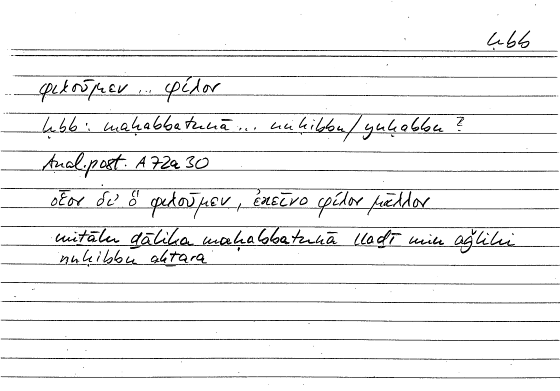 ḥbb
φιλοῦμεν ... φίλον
ḥbb: maḥabbatunā ... nuḥibbu/yuḥabbu ?
Anal. post. A 72a 30
οἷον δι' ὃ φιλοῦμεν, ἐκεῖνο φίλον μᾶλλον
miṯālu ḏālika maḥabbatunā llaḏī min aǧlihi
nuḥibbu akṯara